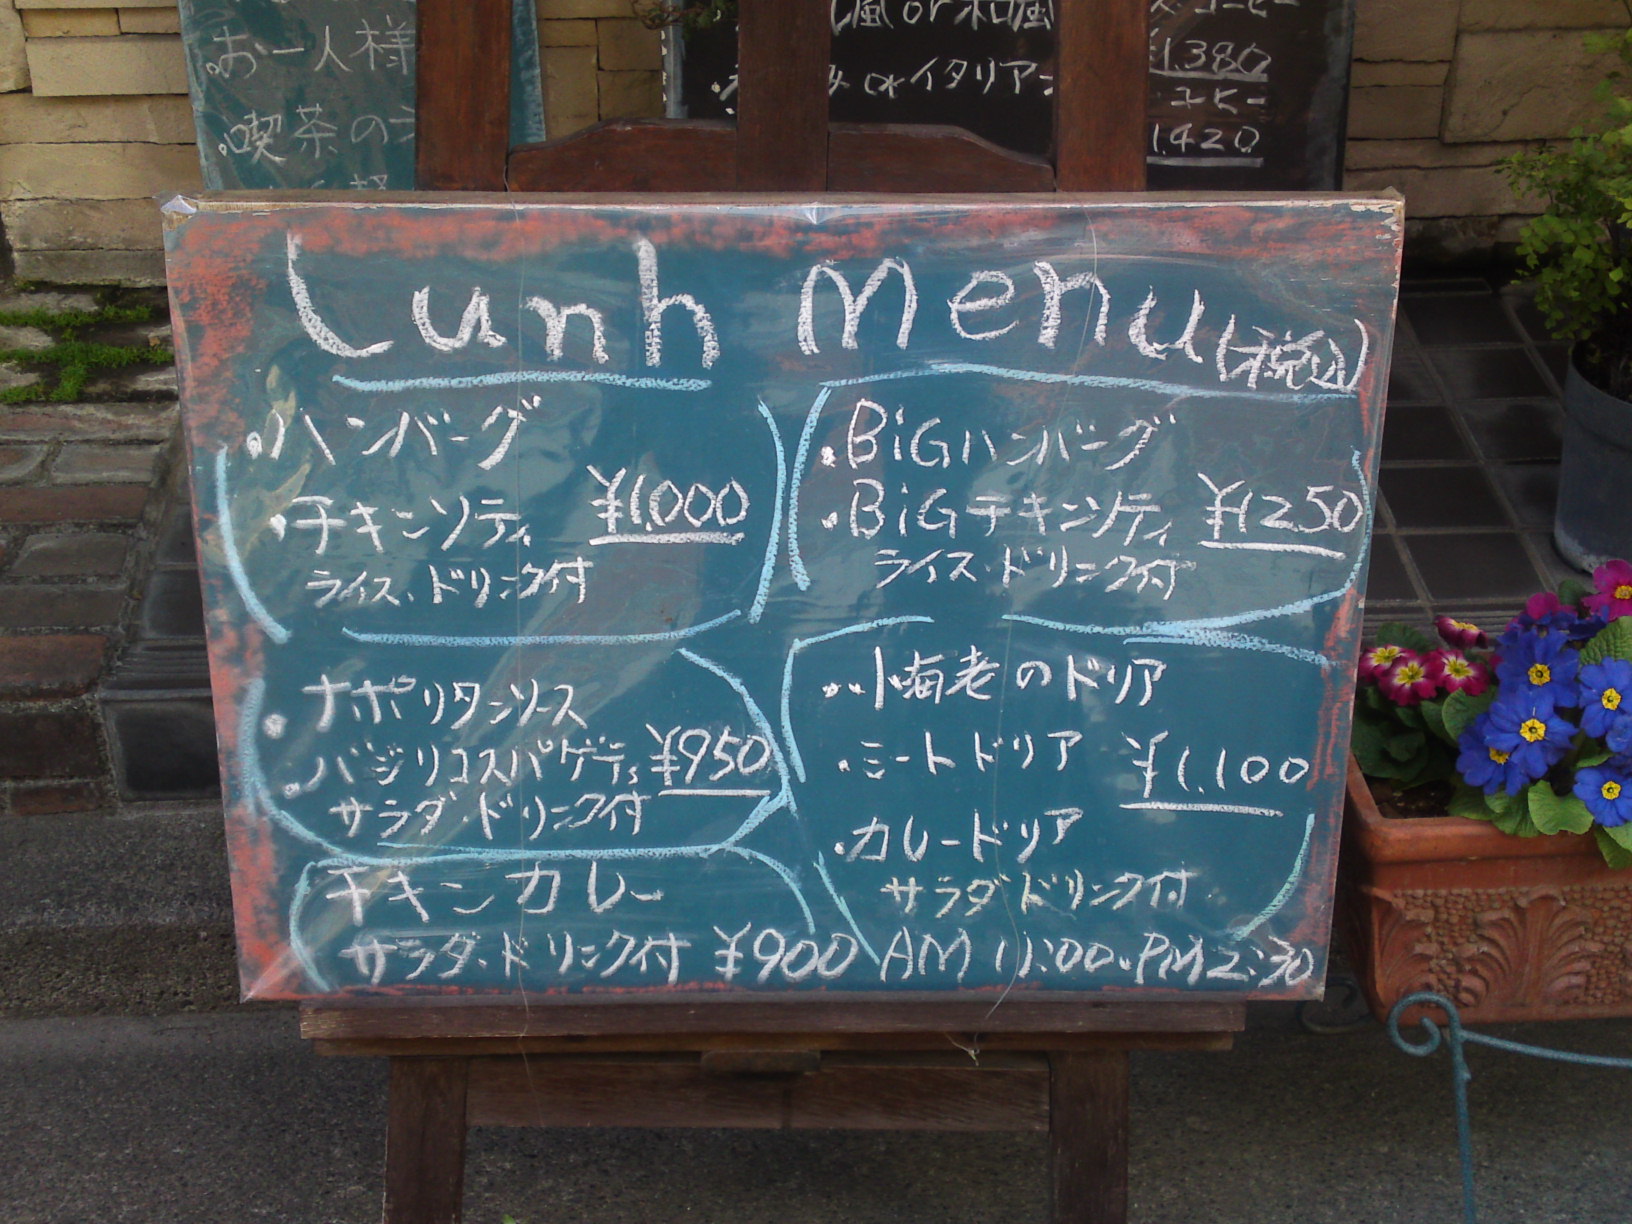 お一人様
喫茶の
風or和風
orイタリア
コーヒー
¥1.380
コーヒー
1.420
Lunh Menu(税込)
・ハンバーグ
・チキンソティ ¥1.000
ライス、ドリンク付
・BiGハンバーグ
・BiGチキンソティ ¥1250
ライス・ドリンク付
・ナポリタンソース
・バジリコスパゲティ ¥950
サラダ・ドリンク付
・小海老のドリア
・ミートドリア ¥1.100
・カレードリア
サラダ・ドリンク付
チキンカレー
サラダ・ドリンク付 ¥900
AM 11:00.PM2:30